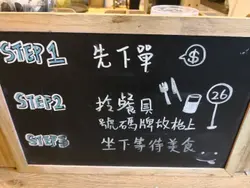 STEP1 先下單 $
STEP2 拎餐具
號碼牌放枱上 26
STEP3 坐下等待美食